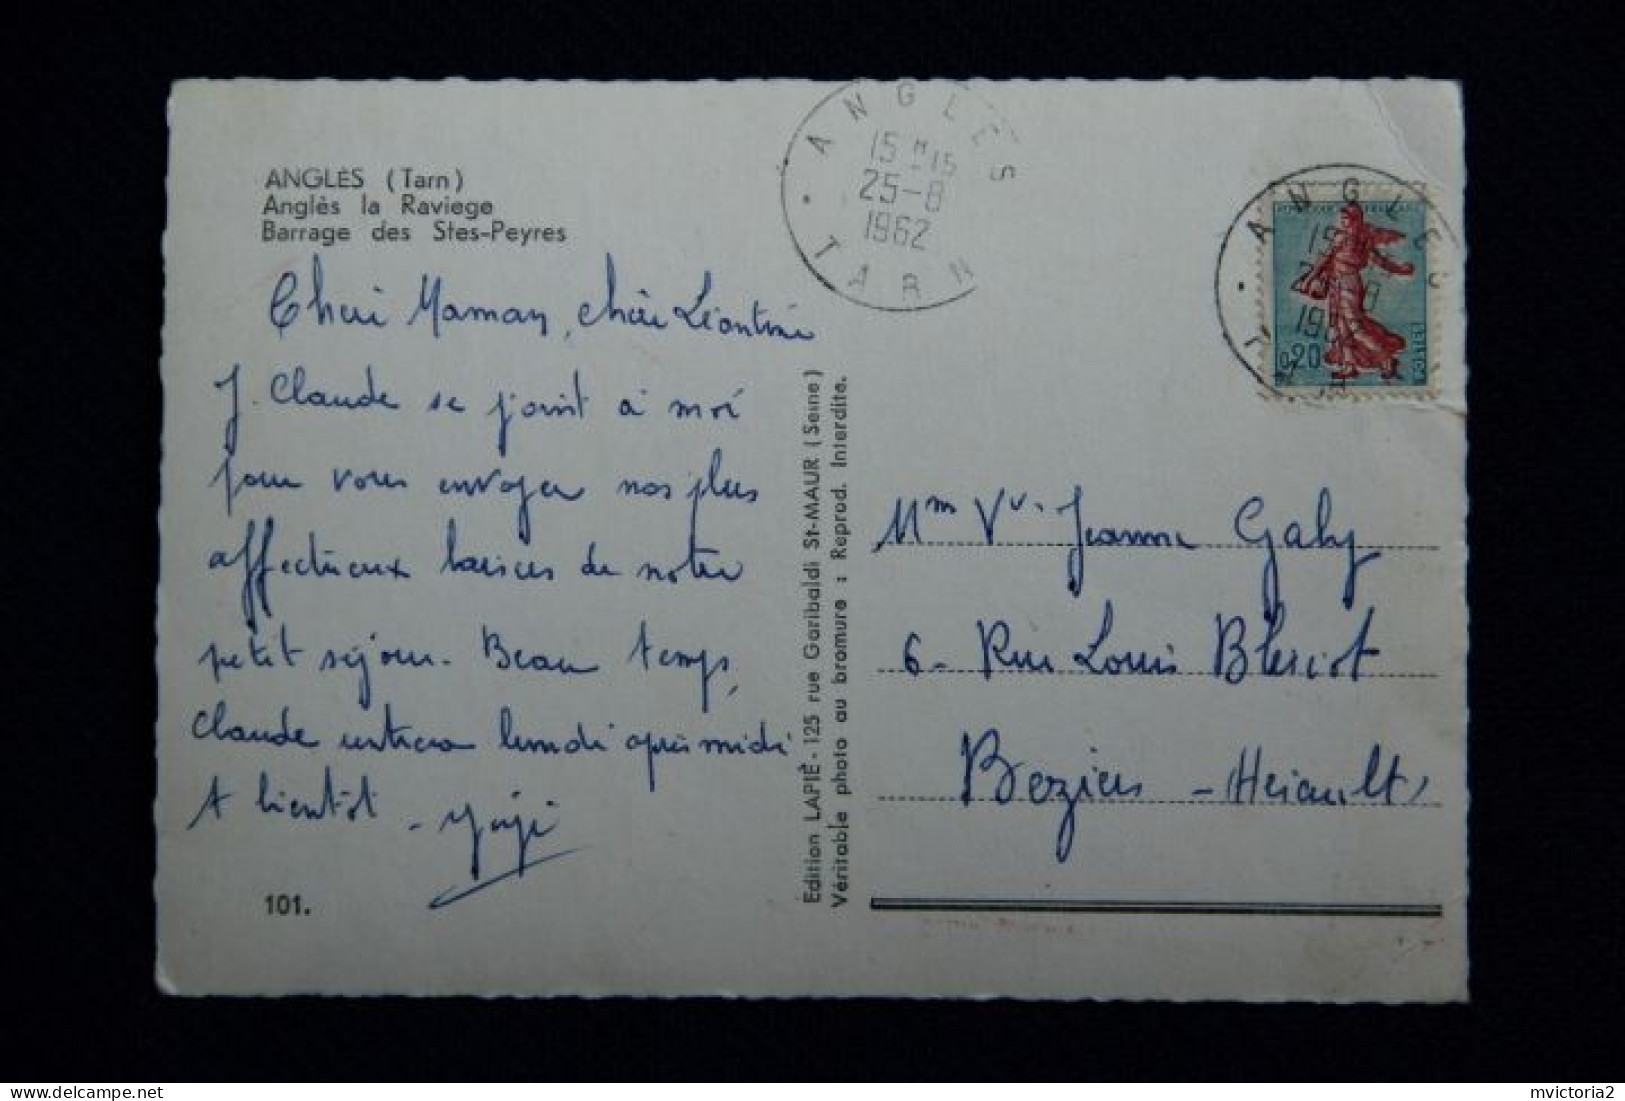 ANGLÈS (Tarn)
Anglès la Raviege
Barrage des Stes-Peyres
Cheri Maman, chère Léontine
J. Claude se joint à moi
pour vous envoyer nos plus
affectueux baisers de notre
petit séjour. Beau temps,
Claude rentrera lundi après midi
A bientôt -
101.
Edition LAPIÉ - 125 rue Garibaldi St-MAUR (Seine)
Véritable photo au bromure : Reprod. Interdite.
ANGLES
15 H 15
25-8
1962
TARN
ANGLES
0,20
Mm Vv. Jeanne Gaby
6 - Rue Louis Bleriot
Beziers - Hérault
delcampe.net
mvictoria2